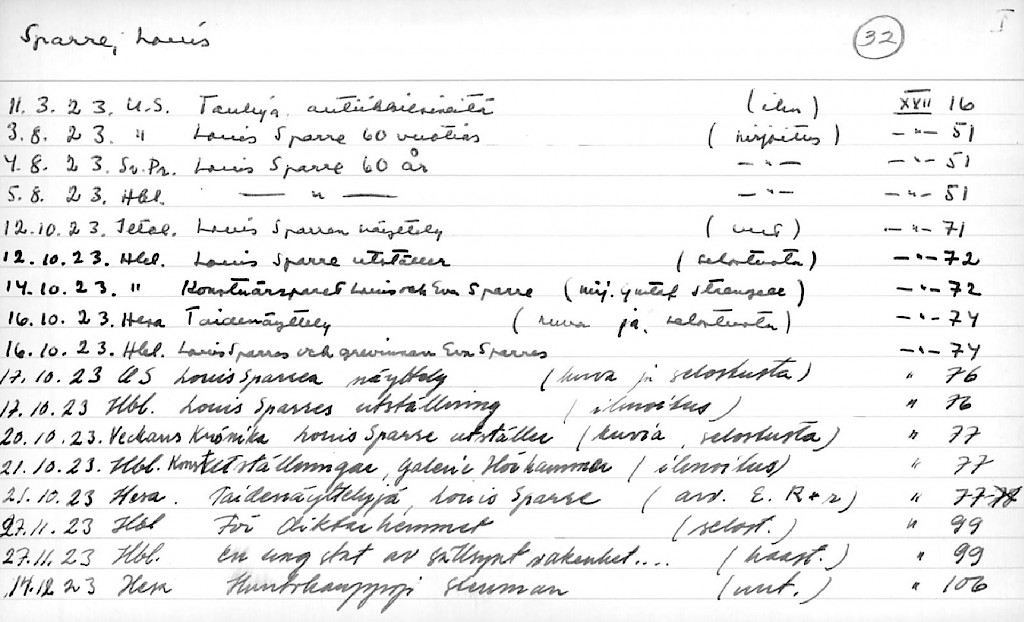 I
Sparre, Louis 32
11. 3. 23. U.S. Tauluja, antiikkiesineitä (ilm) XVII 16
3. 8. 23. " Louis Sparre 60 vuotias (kirjoitus) -"- 51
4. 8. 23. Sv.Pr. Louis Sparre 60 år -"- 51
5. 8. 23. Hbl. —— " —— -"- 51
12.10.23. Louis Sparren näyttely (uut) -"- 71
12.10.23. Hbl. Louis Sparre utställer (selostusta) -"- 72
14.10.23. " Konstnärsparet Louis och Eva Sparre (kirj. Gustaf Strengell) -"- 72
16.10.23. Hesa Taidenäyttely (kuva ja selostusta) -"- 74
16.10.23. Hbl. Louis Sparres och grevinnan Eva Sparres -"- 74
17.10.23 US Louis Sparren näyttely (kuva ja selostusta) " 76
17.10.23 Hbl. Louis Sparres utställning (ilmoitus) " 76
20.10.23. Veckans Krönika Louis Sparre utställer (kuvia, selostusta) " 77
21.10.23. Hbl. Konstutställningar, Galerie Hörhammer (ilmoitus) " 77
21.10.23 Hesa. Taidenäyttelyjä, Louis Sparre (arv. E. R-r) " 77-78
27.11.23 Hbl För Diktarhemmet (selost.) " 99
27.11.23 Hbl. En ung stat av sällsynt vakenhet.... (haast.) " 99
14.12 23 Hesa Huutokauppoja (uut.) " 106